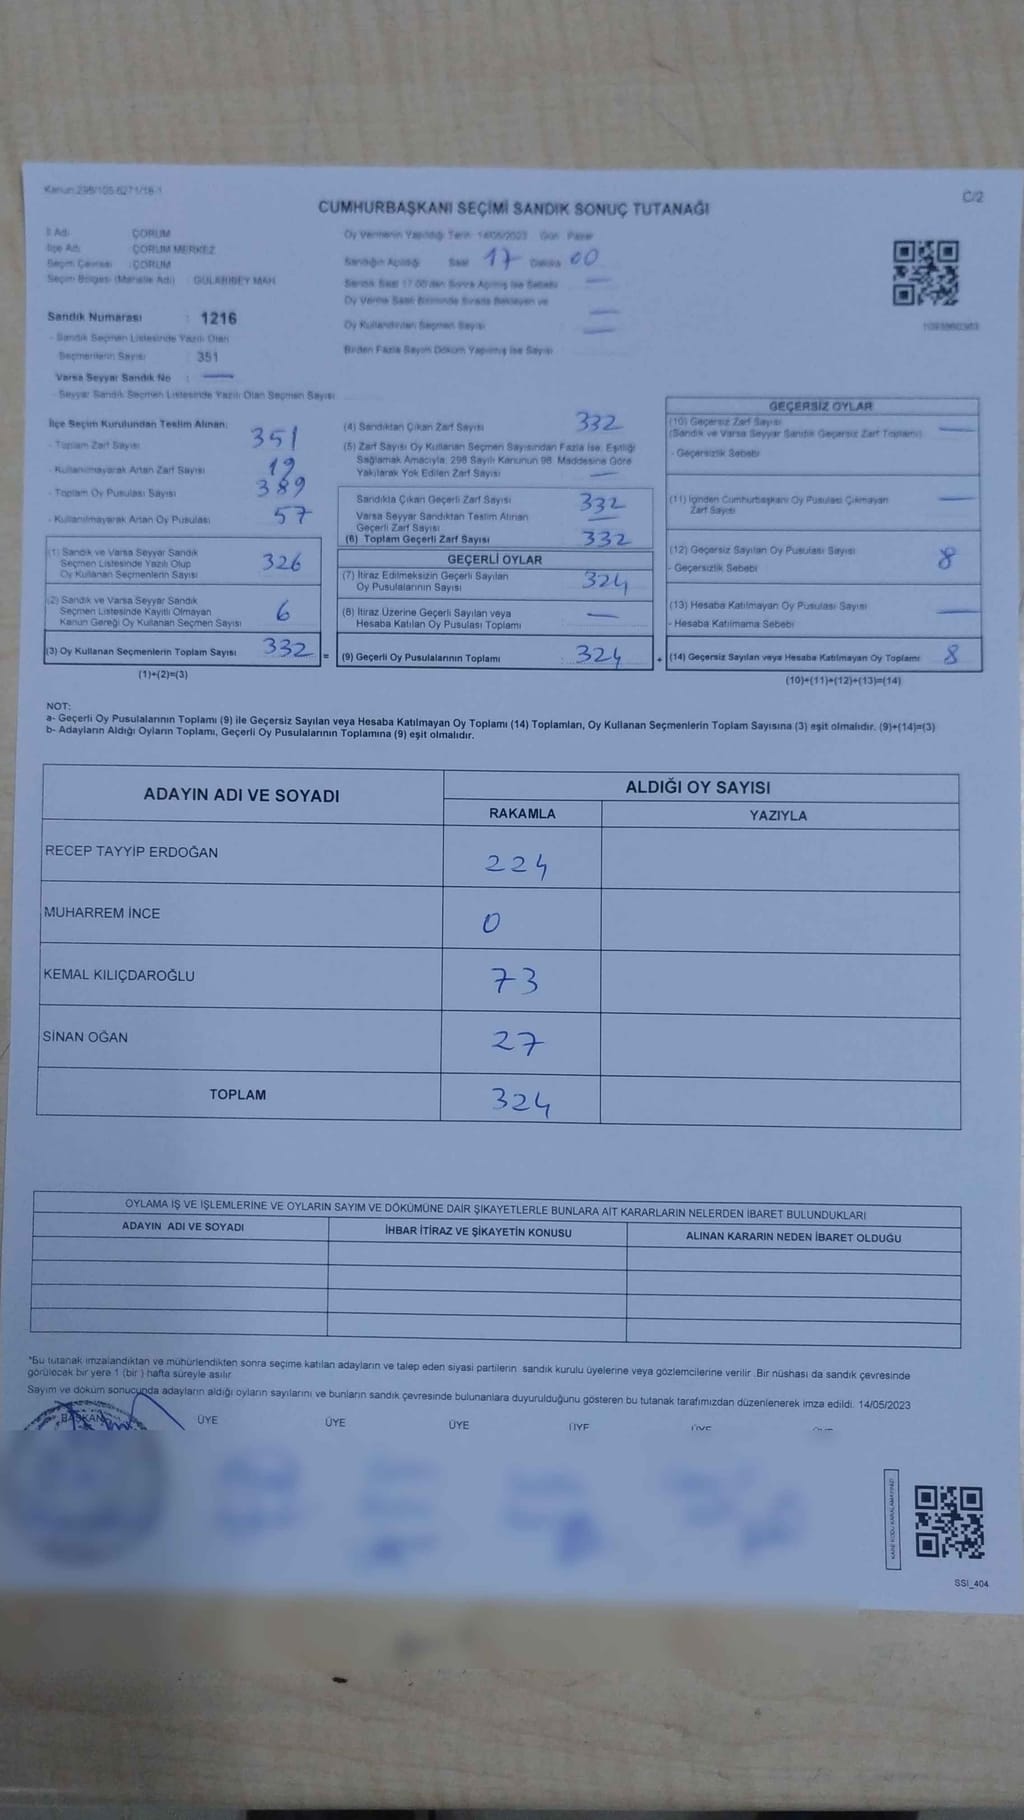 Kanun:298/105-6271/16-1
C/2
CUMHURBAŞKANI SEÇİMİ SANDIK SONUÇ TUTANAĞI
İl Adı : ÇORUM
İlçe Adı : ÇORUM MERKEZ
Seçim Çevresi : ÇORUM
Seçim Bölgesi (Mahalle Adı) : GÜLABİBEY MAH.
Sandık Numarası : 1216
- Sandık Seçmen Listesinde Yazılı Olan
Seçmenlerin Sayısı : 351
Varsa Seyyar Sandık No : —
- Seyyar Sandık Seçmen Listesinde Yazılı Olan Seçmen Sayısı
Oy Vermenin Yapıldığı Tarih 14/05/2023 Gün Pazar
Sandığın Açıldığı Saat 17 Dakika 00
Sandık Saat 17.00'den Sonra Açılmış İse Sebebi —
Oy Verme Saati Bitiminde Sırada Bekleyen ve
Oy Kullandırılan Seçmen Sayısı —
Birden Fazla Sayım Döküm Yapılmış İse Sayısı
İlçe Seçim Kurulundan Teslim Alınan:
- Toplam Zarf Sayısı 351
- Kullanılmayarak Artan Zarf Sayısı 19
- Toplam Oy Pusulası Sayısı 389
- Kullanılmayarak Artan Oy Pusulası 57
(1) Sandık ve Varsa Seyyar Sandık
Seçmen Listesinde Yazılı Olup
Oy Kullanan Seçmenlerin Sayısı 326
(2) Sandık ve Varsa Seyyar Sandık
Seçmen Listesinde Kayıtlı Olmayan
Kanun Gereği Oy Kullanan Seçmen Sayısı 6
(3) Oy Kullanan Seçmenlerin Toplam Sayısı 332 =
(1)+(2)=(3)
(4) Sandıktan Çıkan Zarf Sayısı 332
(5) Zarf Sayısı Oy Kullanan Seçmen Sayısından Fazla İse, Eşitliği
Sağlamak Amacıyla, 298 Sayılı Kanunun 98. Maddesine Göre
Yakılarak Yok Edilen Zarf Sayısı —
Sandıkta Çıkan Geçerli Zarf Sayısı 332
Varsa Seyyar Sandıktan Teslim Alınan
Geçerli Zarf Sayısı —
(6) Toplam Geçerli Zarf Sayısı 332
GEÇERLİ OYLAR
(7) İtiraz Edilmeksizin Geçerli Sayılan
Oy Pusulalarının Sayısı 324
(8) İtiraz Üzerine Geçerli Sayılan veya
Hesaba Katılan Oy Pusulası Toplamı —
(9) Geçerli Oy Pusulalarının Toplamı 324 +
GEÇERSİZ OYLAR
(10) Geçersiz Zarf Sayısı
(Sandık ve Varsa Seyyar Sandık Geçersiz Zarf Toplamı) —
- Geçersizlik Sebebi
(11) İçinden Cumhurbaşkanı Oy Pusulası Çıkmayan
Zarf Sayısı —
(12) Geçersiz Sayılan Oy Pusulası Sayısı 8
- Geçersizlik Sebebi
(13) Hesaba Katılmayan Oy Pusulası Sayısı —
- Hesaba Katılmama Sebebi
(14) Geçersiz Sayılan veya Hesaba Katılmayan Oy Toplamı 8
(10)+(11)+(12)+(13)=(14)
NOT:
a- Geçerli Oy Pusulalarının Toplamı (9) ile Geçersiz Sayılan veya Hesaba Katılmayan Oy Toplamı (14) Toplamları, Oy Kullanan Seçmenlerin Toplam Sayısına (3) eşit olmalıdır. (9)+(14)=(3)
b- Adayların Aldığı Oyların Toplamı, Geçerli Oy Pusulalarının Toplamına (9) eşit olmalıdır.
ADAYIN ADI VE SOYADI
ALDIĞI OY SAYISI
RAKAMLA YAZIYLA
RECEP TAYYİP ERDOĞAN 224
MUHARREM İNCE 0
KEMAL KILIÇDAROĞLU 73
SİNAN OĞAN 27
TOPLAM 324
OYLAMA İŞ VE İŞLEMLERİNE VE OYLARIN SAYIM VE DÖKÜMÜNE DAİR ŞİKAYETLERLE BUNLARA AİT KARARLARIN NELERDEN İBARET BULUNDUKLARI
ADAYIN ADI VE SOYADI İHBAR İTİRAZ VE ŞİKAYETİN KONUSU ALINAN KARARIN NEDEN İBARET OLDUĞU
*Bu tutanak imzalandıktan ve mühürlendikten sonra seçime katılan adayların ve talep eden siyasi partilerin sandık kurulu üyelerine veya gözlemcilerine verilir. Bir nüshası da sandık çevresinde
görülecek bir yere 1 (bir ) hafta süreyle asılır.
Sayım ve döküm sonucunda adayların aldığı oyların sayılarını ve bunların sandık çevresinde bulunanlara duyurulduğunu gösteren bu tutanak tarafımızdan düzenlenerek imza edildi. 14/05/2023
BAŞKAN ÜYE ÜYE ÜYE ÜYE ÜYE
KARE KODU KARALAMAYINIZ!
SSI_404